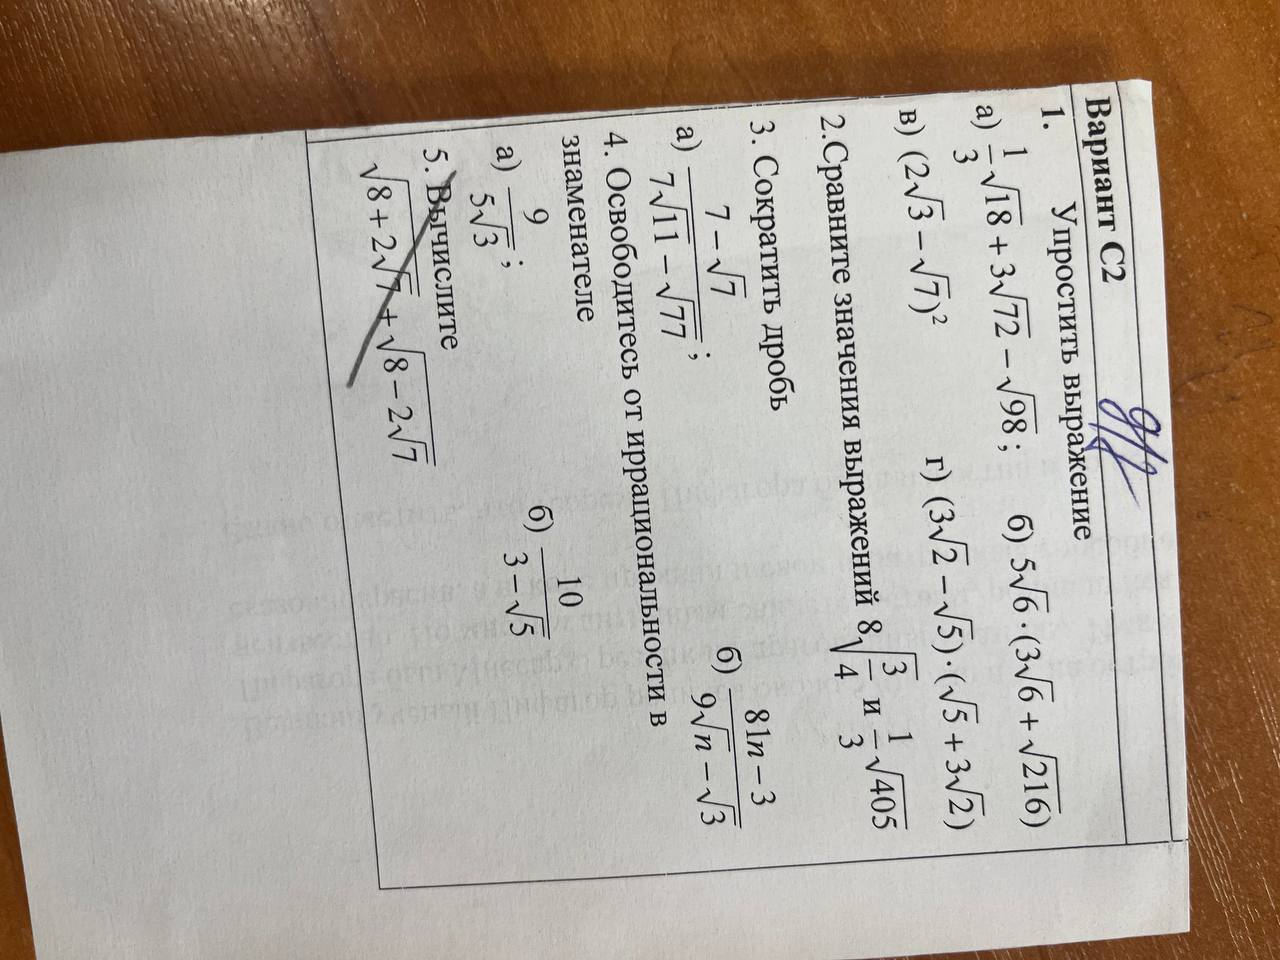 Вариант С2
1. Упростить выражение
а) $\frac{1}{3}\sqrt{18}+3\sqrt{72}-\sqrt{98}$; б) $5\sqrt{6}\cdot(3\sqrt{6}+\sqrt{216})$
в) $(2\sqrt{3}-\sqrt{7})^2$ г) $(3\sqrt{2}-\sqrt{5})\cdot(\sqrt{5}+3\sqrt{2})$
2.Сравните значения выражений $8\sqrt{\frac{3}{4}}$ и $\frac{1}{3}\sqrt{405}$
3. Сократить дробь
а) $\frac{7-\sqrt{7}}{7\sqrt{11}-\sqrt{77}}$; б) $\frac{81n-3}{9\sqrt{n}-\sqrt{3}}$
4. Освободитесь от иррациональности в
знаменателе
а) $\frac{9}{5\sqrt{3}}$; б) $\frac{10}{3-\sqrt{5}}$
5. Вычислите
$\sqrt{8+2\sqrt{7}}+\sqrt{8-2\sqrt{7}}$